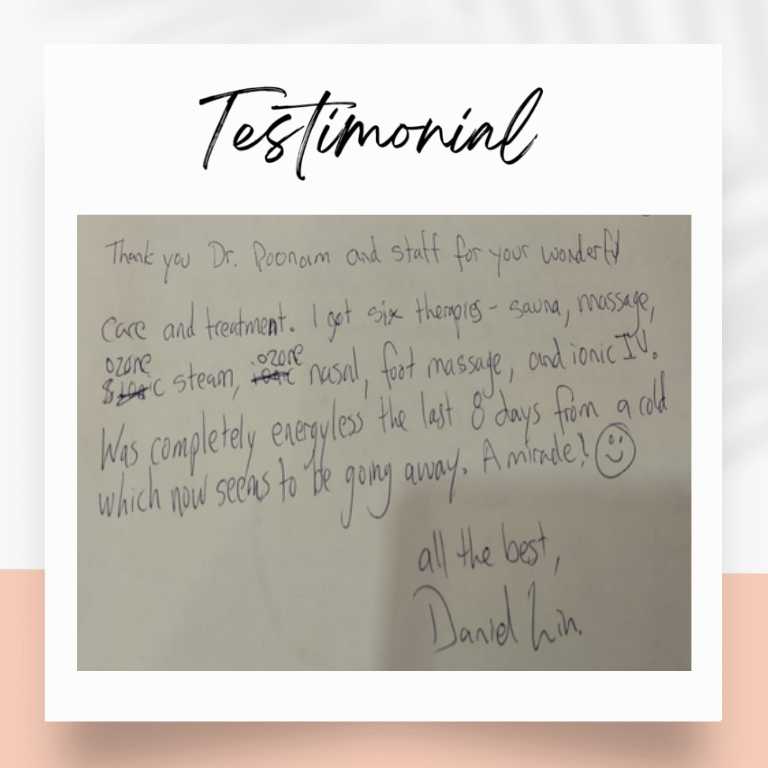 Testimonial
Thank you Dr. Poonam and staff for your wonderful
care and treatment. I got six therapies - sauna, massage,
ozone ozone
steam, nasal, foot massage, and ionic IV.
Was completely energyless the last 8 days from a cold
which now seems to be going away. A miracle! ☺
all the best,
Daniel Lin.